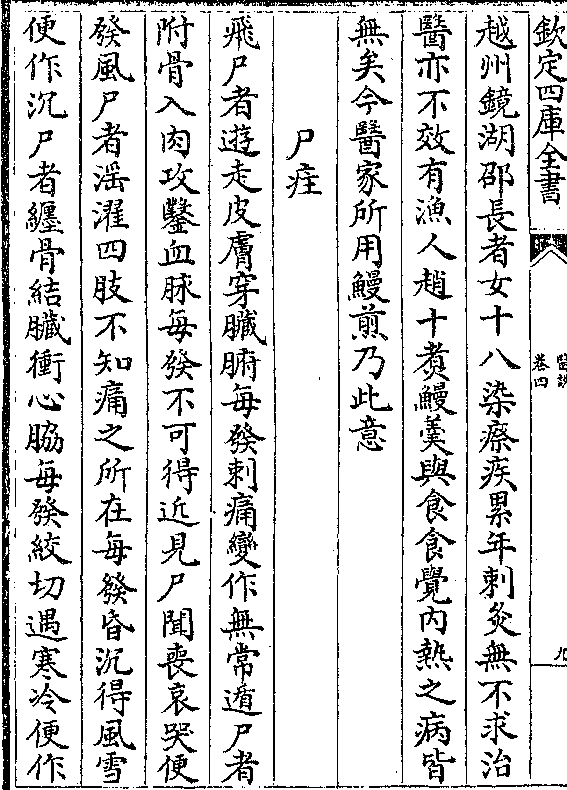 欽定四庫全書
醫說
卷四
九
越州鏡湖邵長者女十八染瘵疾累年刺灸無不求治
醫亦不效有漁人趙十煑鰻羹與食食覺内熱之病皆
無矣今醫家所用鰻煎乃此意
尸疰
飛尸者遊走皮膚穿臟腑每發刺痛變作無常遁尸者
附骨入肉攻鑿血脉每發不可得近見尸聞喪哀哭便
發風尸者淫濯四肢不知痛之所在每發昏沉得風雪
便作沉尸者纒骨結臟衝心脇每發絞切遇寒冷便作